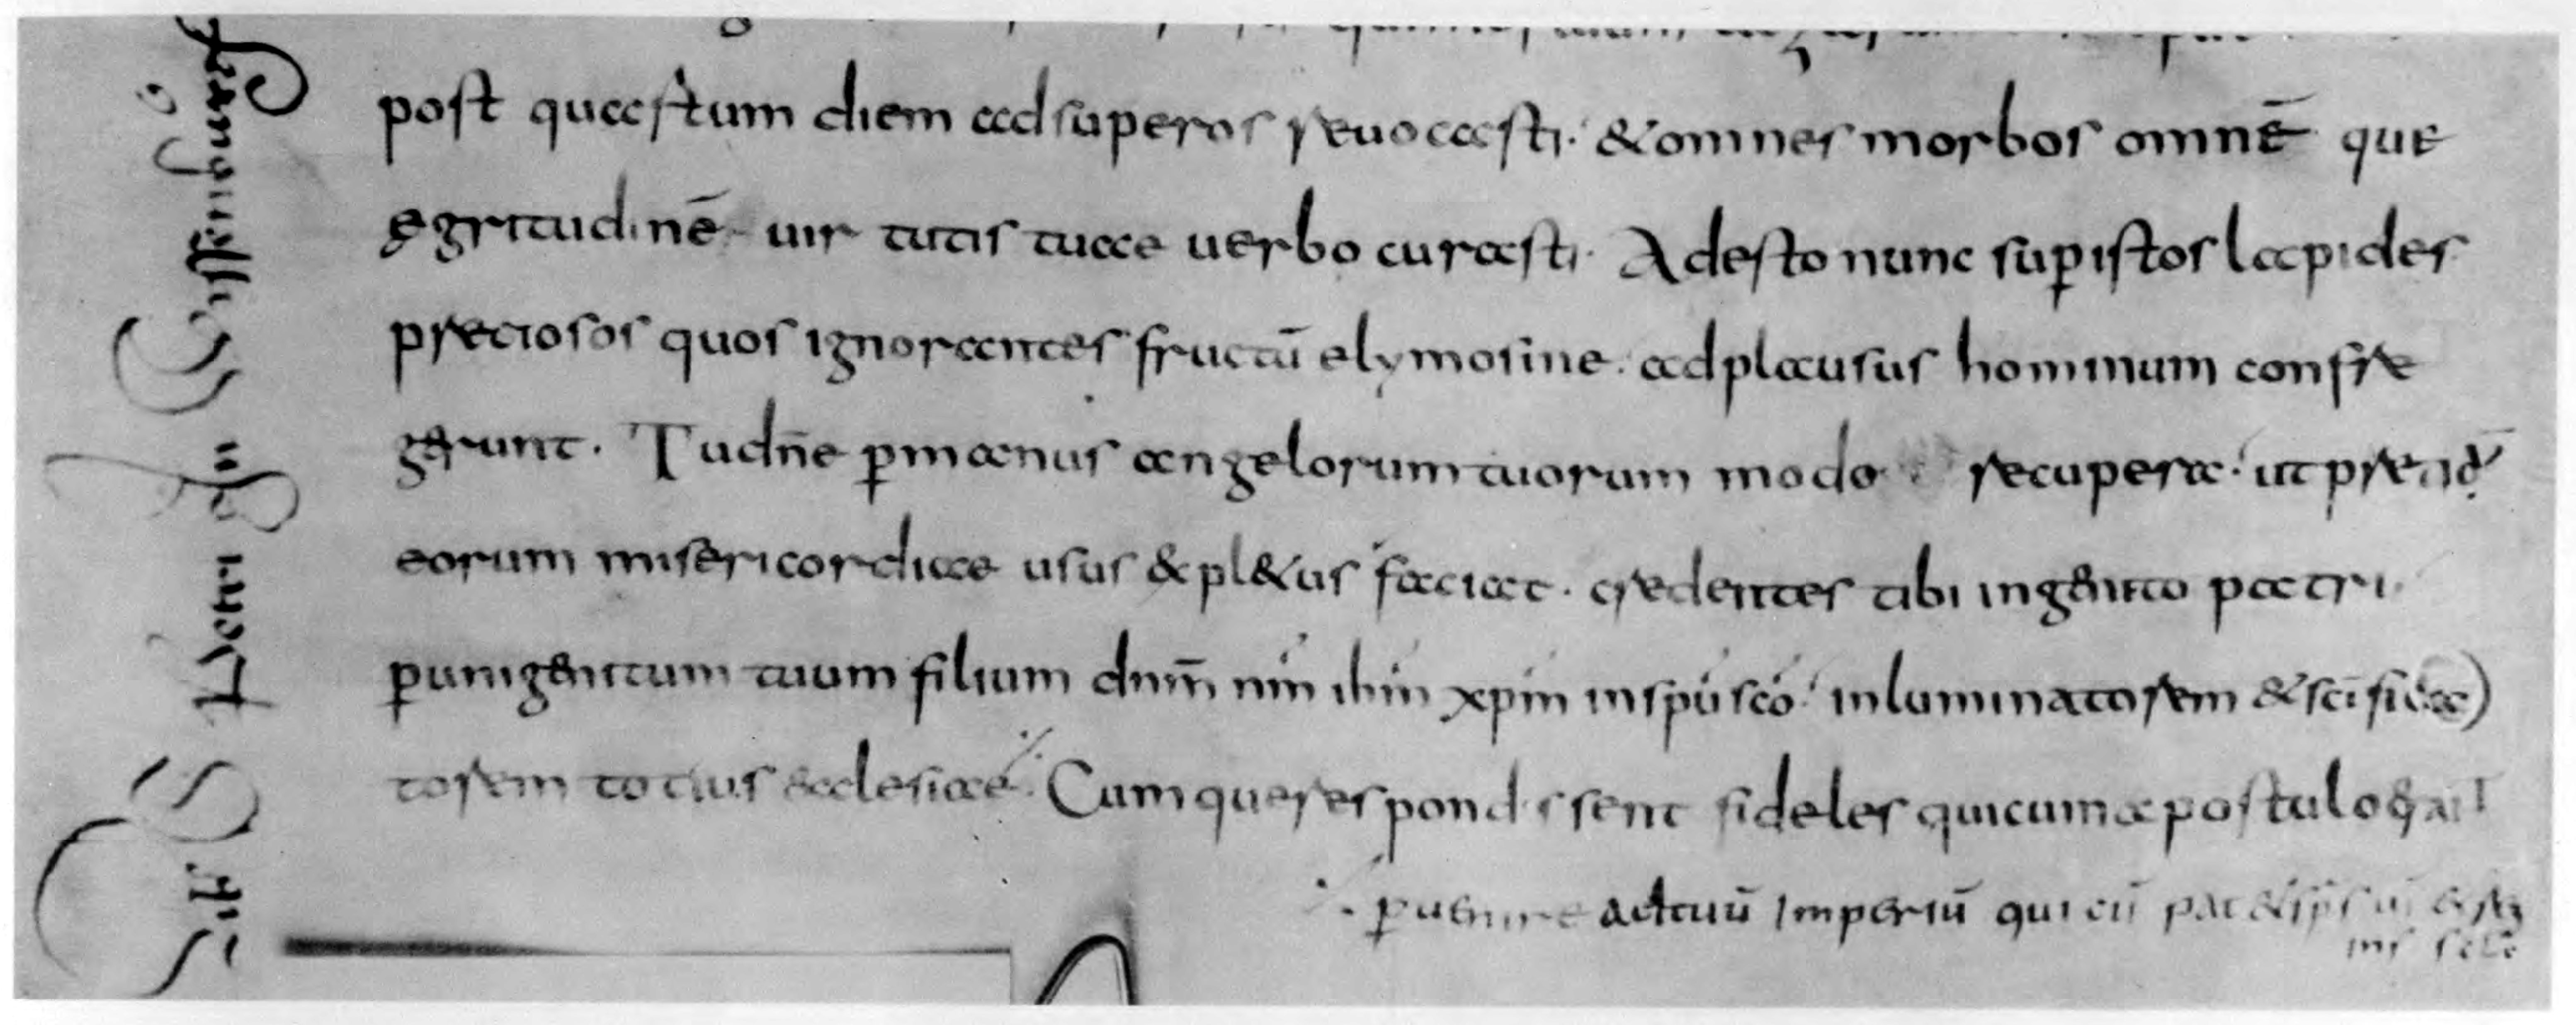 post quaestum diem ad superos reuocasti· & omnes morbos omnē que
egritudinē uirtutis tuae uerbo curasti· Adesto nunc sup istos lapides
preciosos quos ignorantes fructū elymosine· ad plausus hominum confre
gerunt· Tu dn̄e p manus angelorum tuorum modo recupera· ut
eorum misericordiae usus & pl&us faciat· credentes tibi ingenito patri
p unigenitum tuum filium dnm̄ nm̄ ihm̄ xpm̄ in spū scō· inluminatorem & scīfica
torem totius aecclesiae· Cumque respondissent fideles qui cum apostolo
puenire ad tuū imperiū qui cū pat &